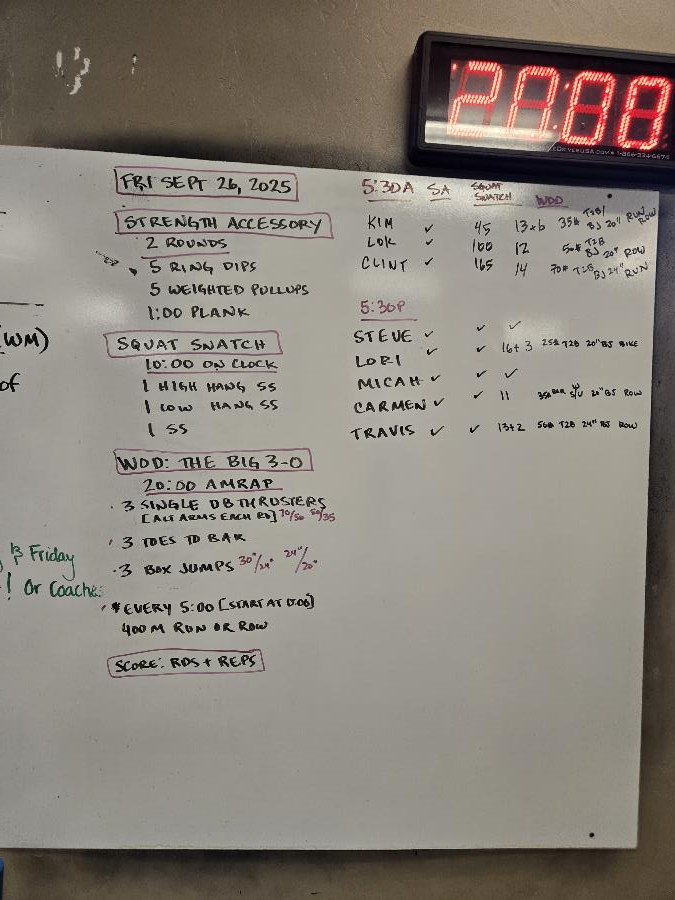 FRI SEPT 26, 2025
STRENGTH ACCESSORY
2 ROUNDS
5 RING DIPS
5 WEIGHTED PULLUPS
1:00 PLANK
SQUAT SNATCH
10:00 ON CLOCK
1 HIGH HANG SS
1 LOW HANG SS
1 SS
WOD: THE BIG 3-0
20:00 AMRAP
· 3 SINGLE DB THRUSTERS
[ALT ARMS EACH RD] 70/50 50/35
· 3 TOES TO BAR
· 3 BOX JUMPS 30"/24" 24"/20"
* EVERY 5:00 [START AT 0:00]
400 M RUN OR ROW
SCORE: RDS + REPS
5:30A SA SQUAT SNATCH WOD
KIM ✓ 45 13+6 35# T2B/ BJ 20" RUN ROW
LOK ✓ 100 12 50# T2B BJ 20" ROW
CLINT ✓ 165 14 70# T2B BJ 24" RUN
5:30P
STEVE ✓ ✓ ✓
LORI ✓ ✓ 16+3 25# T2B 20" BJ BIKE
MICAH ✓ ✓ ✓
CARMEN ✓ ✓ 11 35# S/U 20" BJ ROW
TRAVIS ✓ ✓ 13+2 50# T2B 24" BJ ROW
(WM)
of
Friday
! Or Coaches